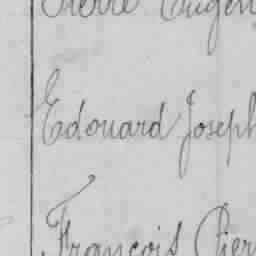 Pierre Eugen
Edouard Joseph
François Pier